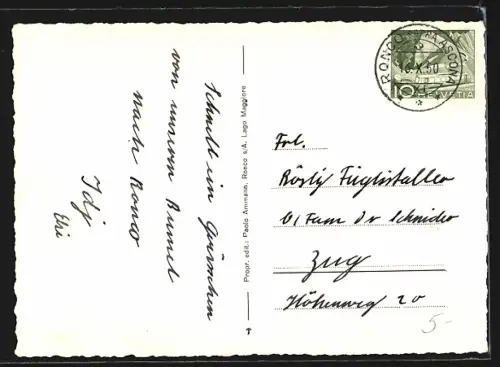 Schnell ein Grüsschen
von unserem Bumel
nach Ronco
Idy
Elsi
Propr. edit.: Paolo Ammann, Ronco s/A. Lago Maggiore
RONCO S/ASCONA
16.X.50
10
HELVETIA
Frl.
Rösly Füglistaller
b/ Fam Dr Schnider
Zug
Höhenweg 20
5-